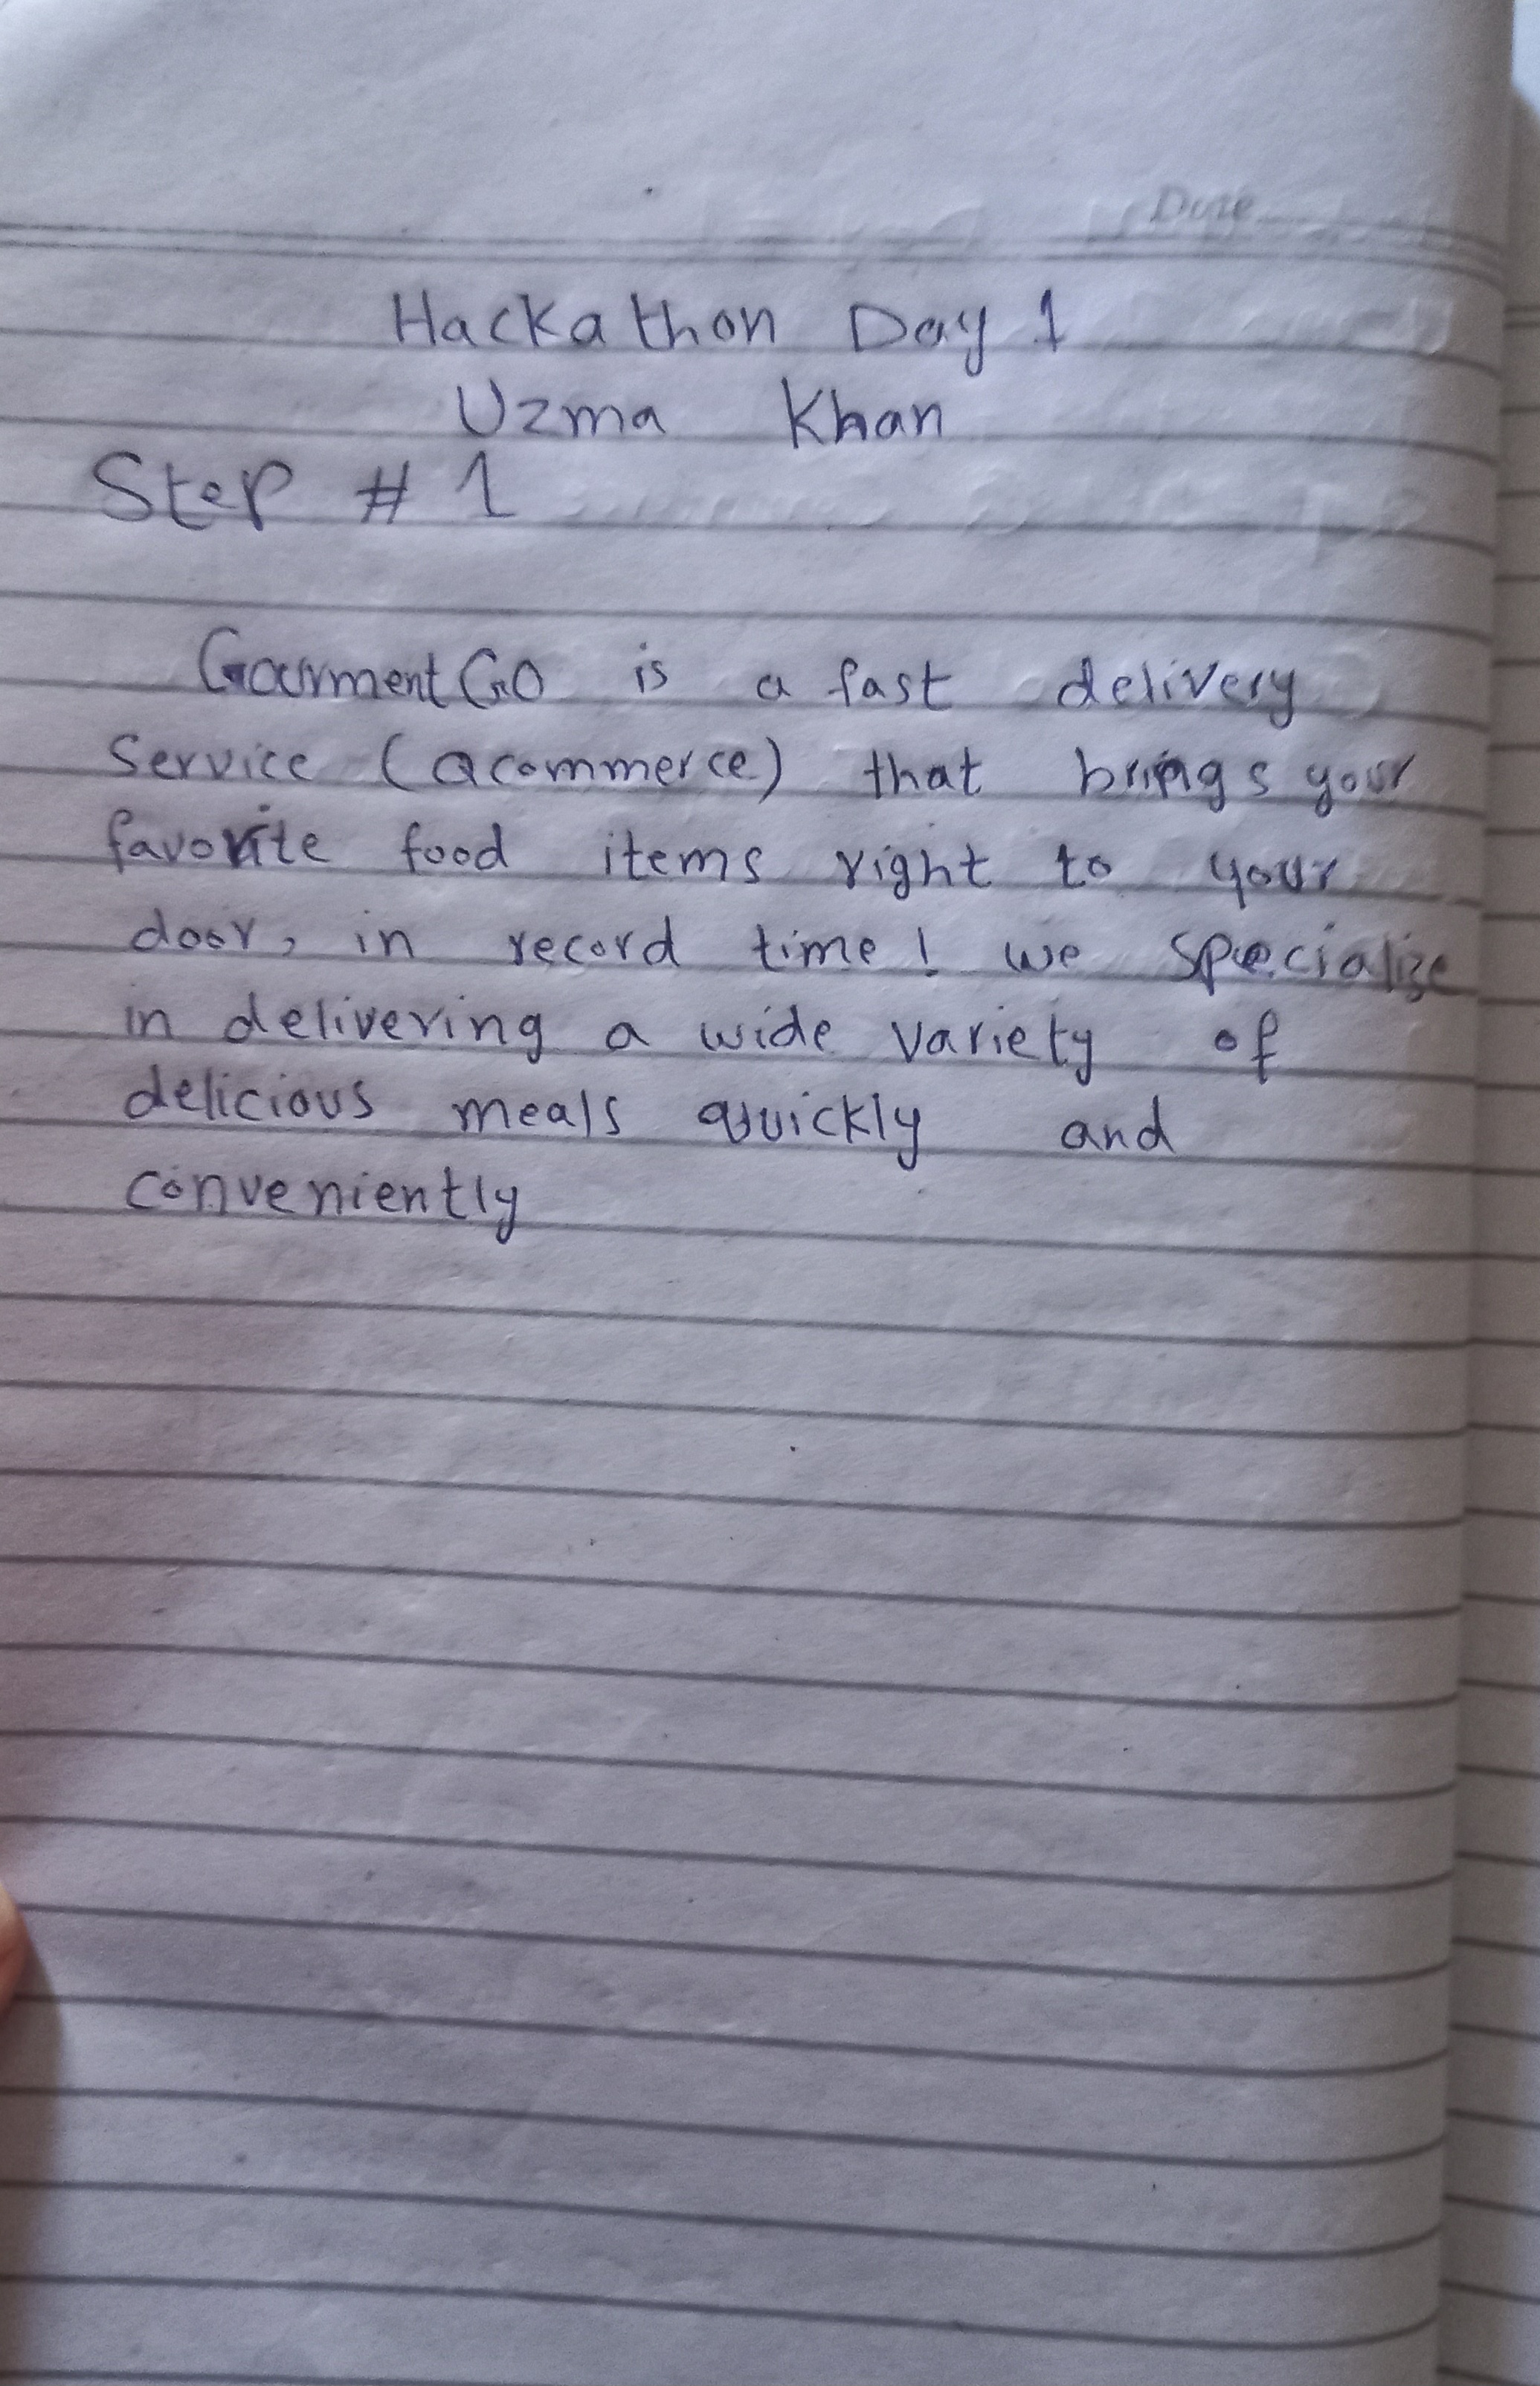 Date
Hackathon Day 1
Uzma Khan
Step # 1
GourmentGO is a fast delivery
Service (Qcommerce) that brings your
favorite food items right to your
door, in record time! we specialize
in delivering a wide variety of
delicious meals quickly and
conveniently